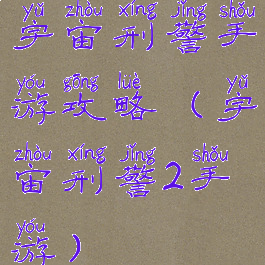 yǔ zhòu xíng jǐng shǒu
宇宙刑警手
yóu gōng lüè yǔ
游攻略(宇
zhòu xíng jǐng shǒu
宙刑警2手
yóu
游)